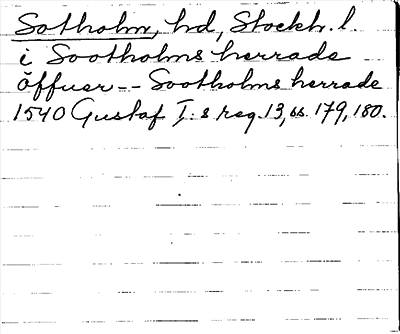 Sotholm, hd, Stockh. l.
i Sootholms herrade
öffuer -- Sootholms herrade
1540 Gustaf I:s reg. 13, ss. 179, 180.